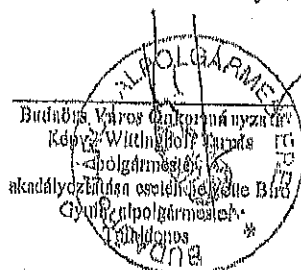 ALPOLGÁRME
Budaörs Város Önkormányzata
Képv.: Wittinghoff Tamás
polgármester
akadályoztatása esetén helyette Bíró
Gyula alpolgármester
Tulajdonos
BUDA
*